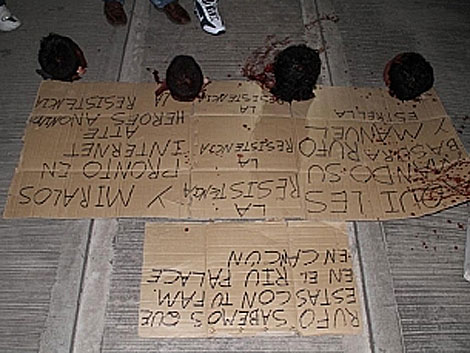 RUFO SABEMOS QUE
ESTAS CON TU FAM.
EN EL RIU PALACE
EN CANCUN
QUI LES
ANDO SU
BASURA RUFO
Y MANUEL
ESTRELLA
LA
RESISTENCIA
LA
RESISTENCIA
LA
RESISTENCIA
Y MIRALOS
PRONTO EN
INTERNET
ATTE
HEROES
LA
RESISTENCIA